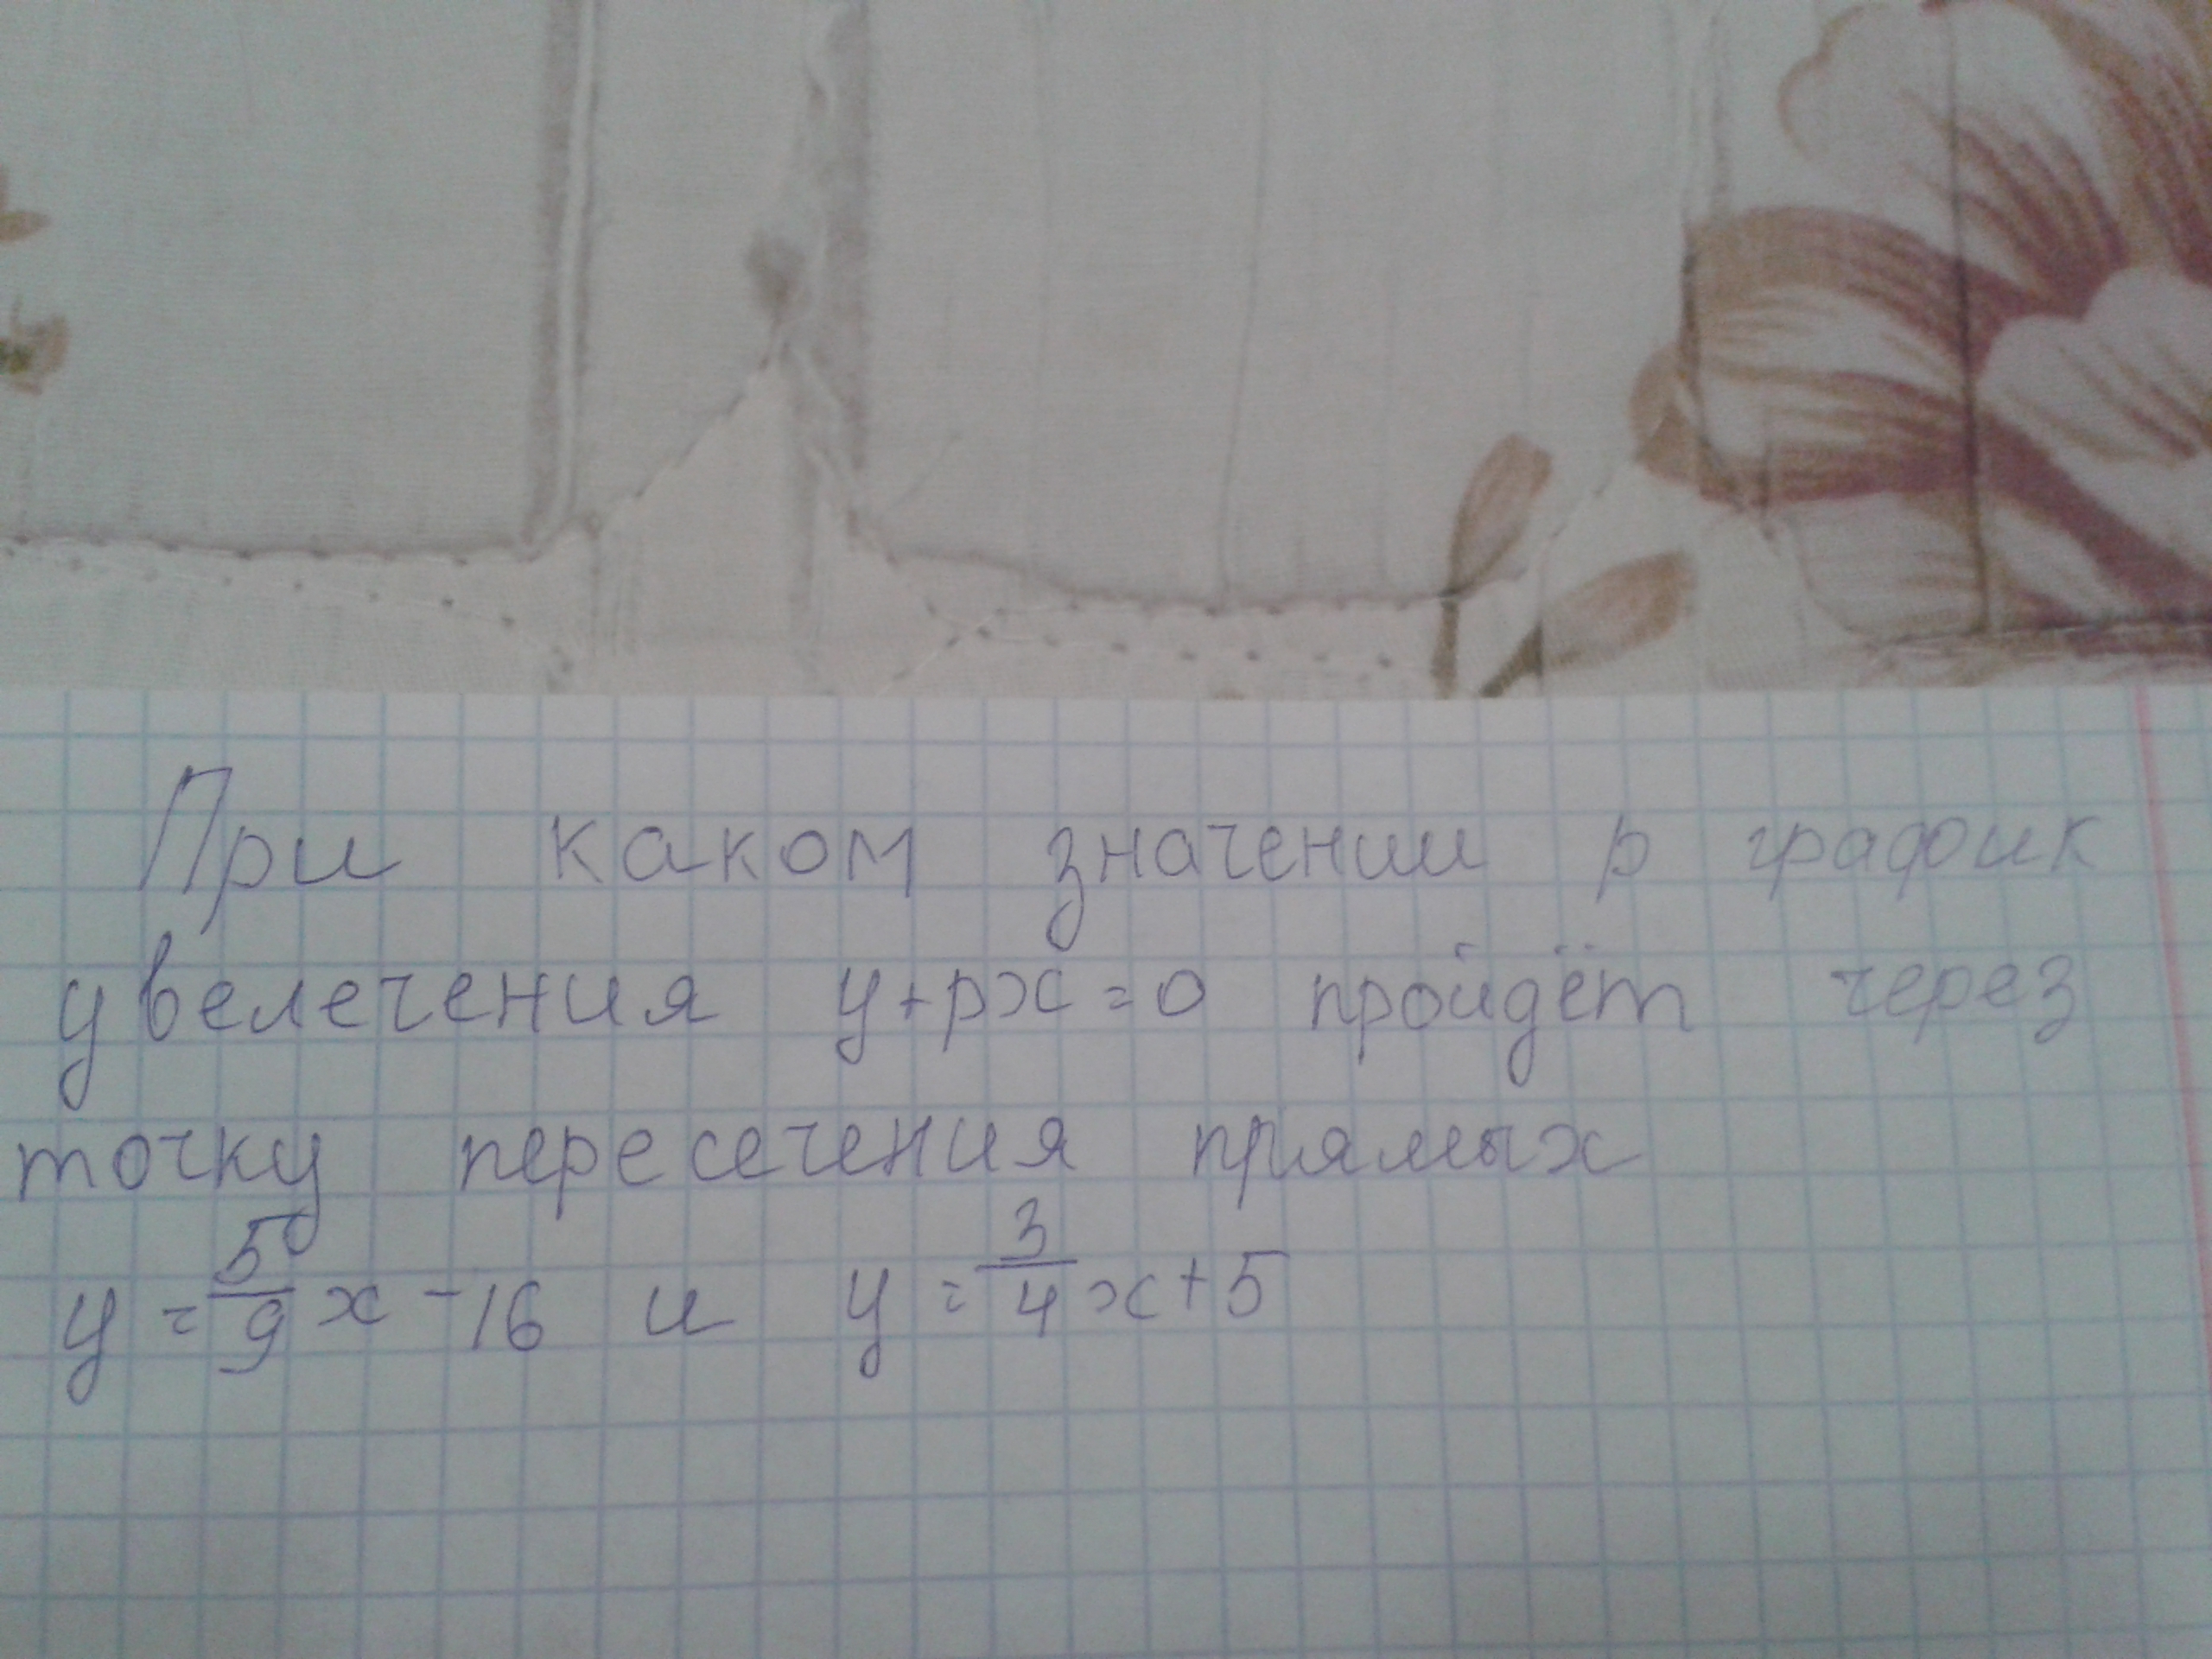 При каком значении р график
увелечения у+рх=0 пройдёт через
точку пересечения прямых
у = 5/9 х - 16 и у = 3/4 х + 5